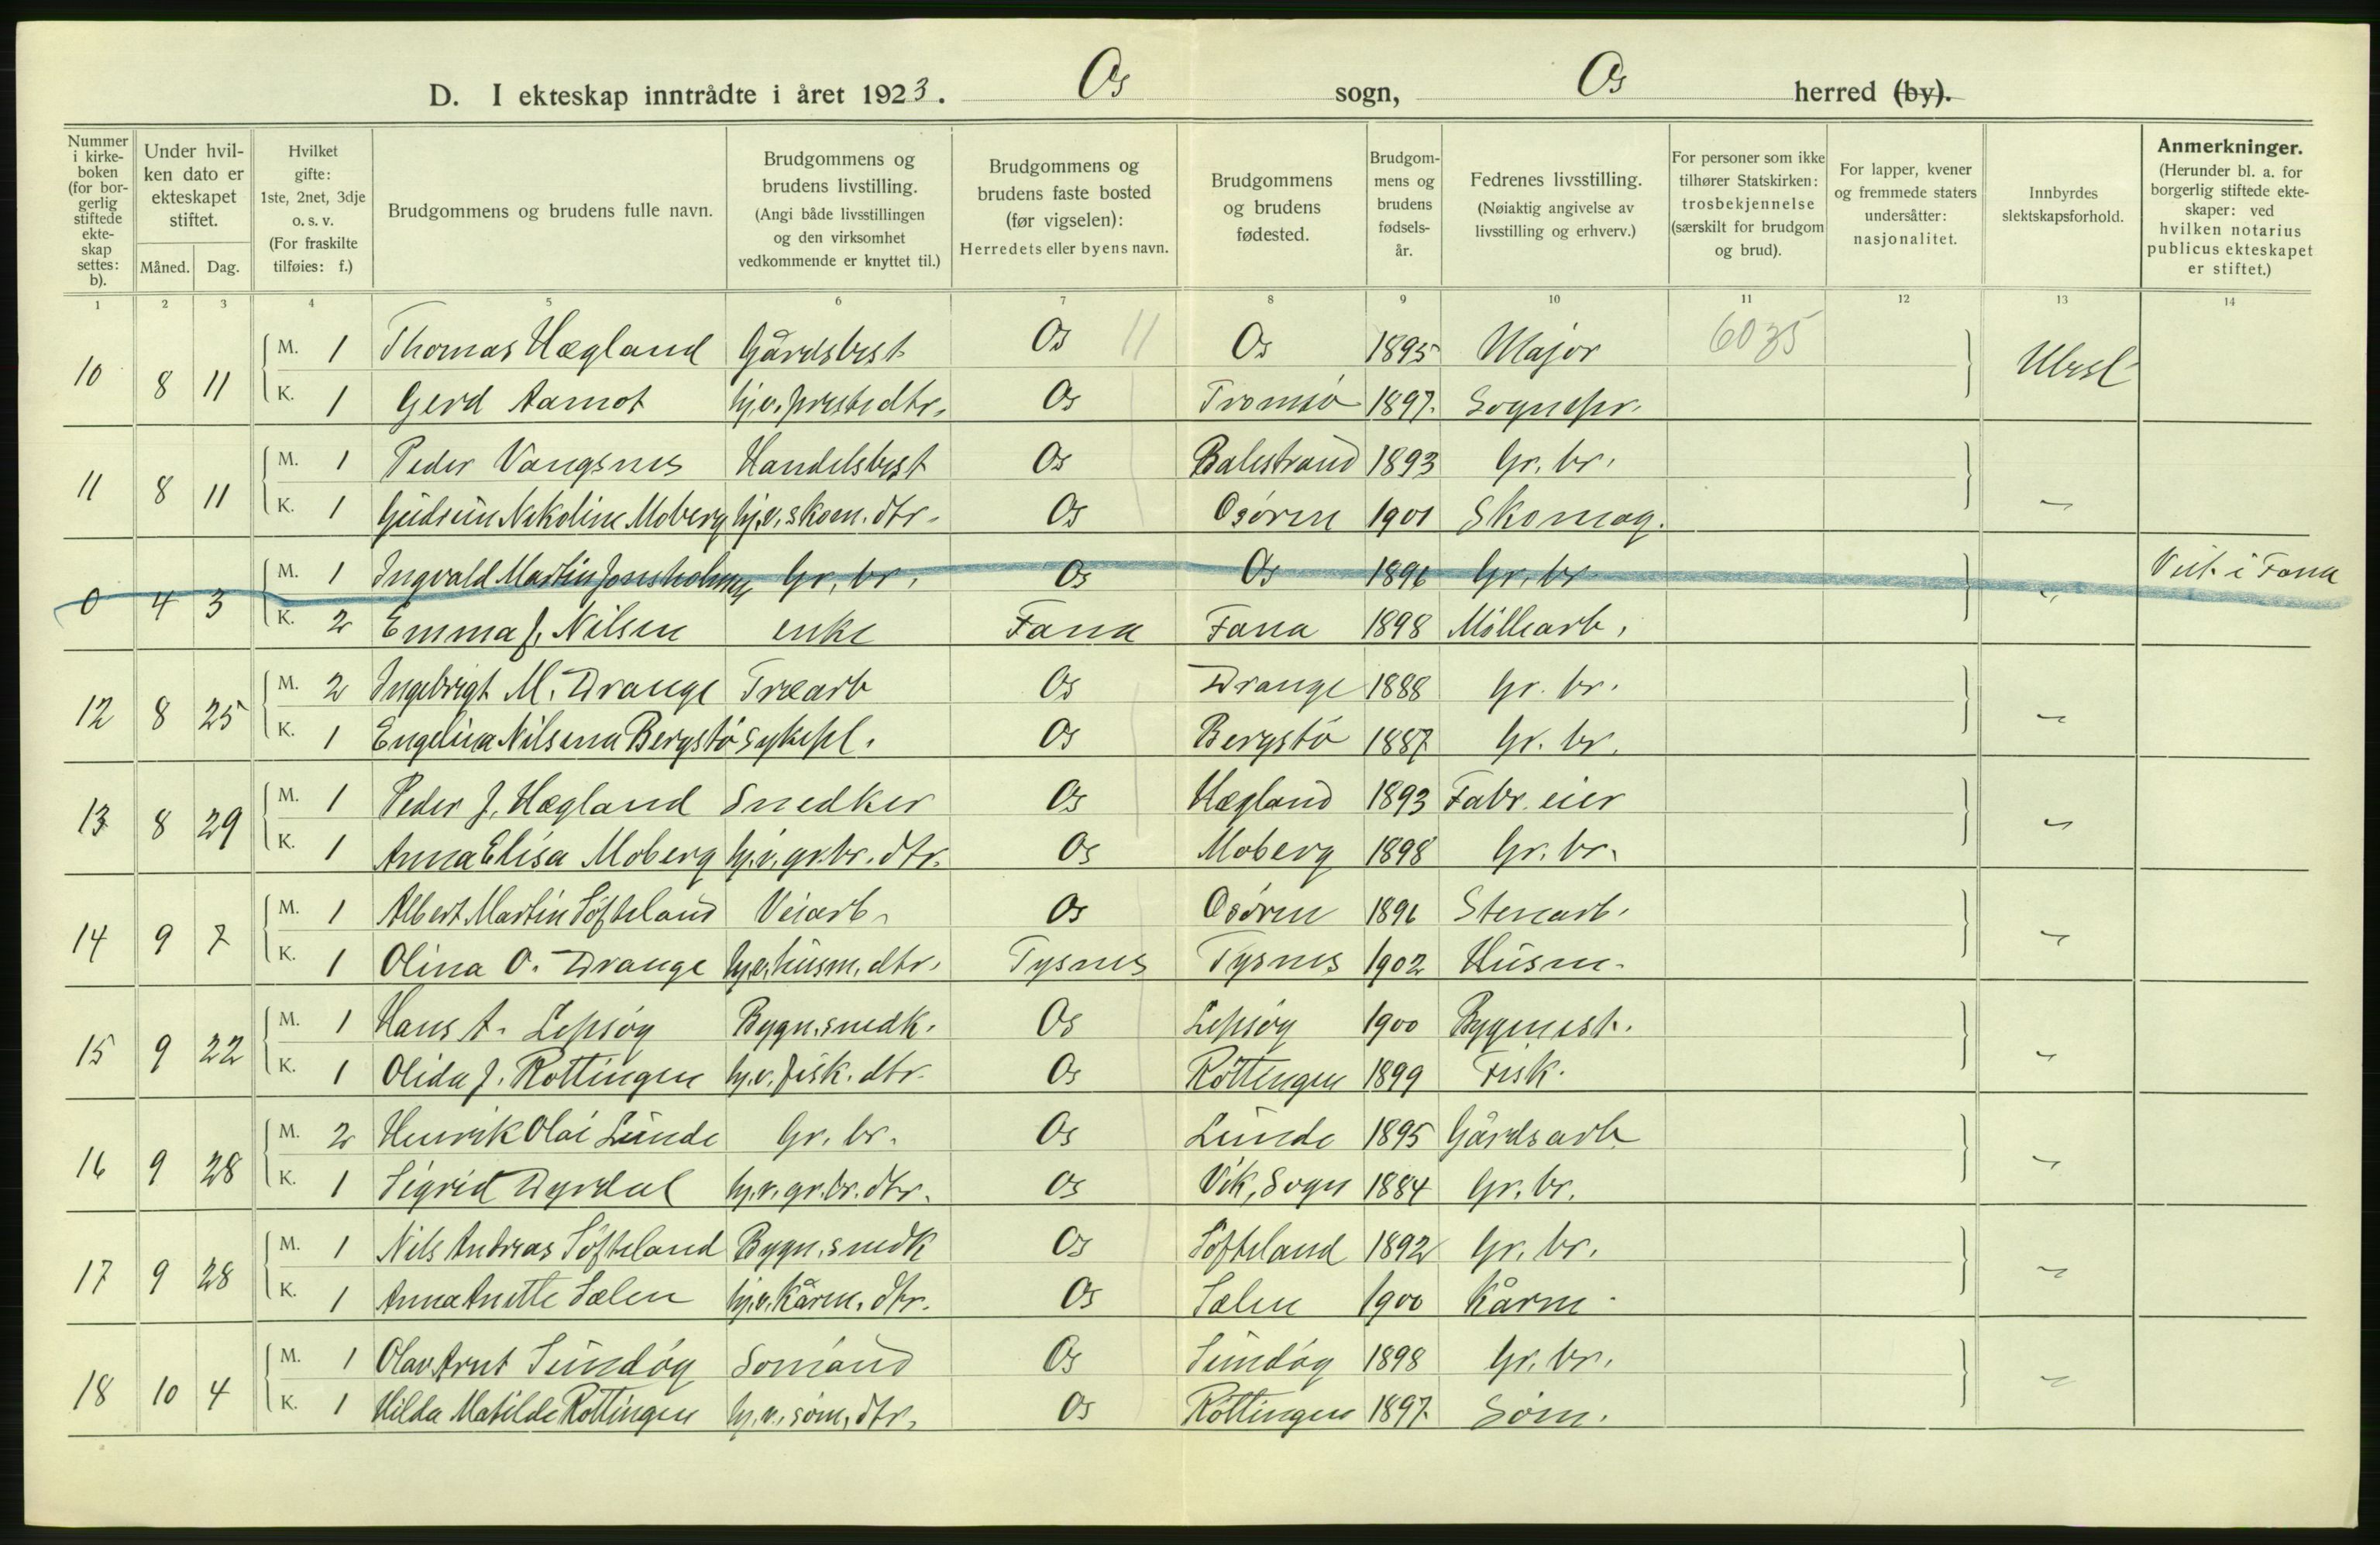 D. I ekteskap inntrådte i året 1923. Os sogn, Os herred (by).
Nummer i kirke-boken (for bor-gerlig stiftede ekte-skap settes: b).
Under hvil-ken dato er ekteskapet stiftet.
Måned. Dag.
Hvilket gifte: 1ste, 2net, 3dje o. s. v. (For fraskilte tilføies: f.)
Brudgommens og brudens fulle navn.
Brudgommens og brudens livstilling. (Angi både livsstillingen og den virksomhet vedkommende er knyttet til.)
Brudgommens og brudens faste bosted (før vigselen): Herredets eller byens navn.
Brudgommens og brudens fødested.
Brudgom-mens og brudens fødsels-år.
Fedrenes livsstilling. (Nøiaktig angivelse av livsstilling og erhverv.)
For personer som ikke tilhører Statskirken: trosbekjennelse (særskilt for brudgom og brud).
For lapper, kvener og fremmede staters undersåtter: nasjonalitet.
Innbyrdes slektskapsforhold.
Anmerkninger. (Herunder bl. a. for borgerlig stiftede ekte-skaper: ved hvilken notarius publicus ekteskapet er stiftet.)
1 2 3 4 5 6 7 8 9 10 11 12 13 14
10 8 11 M. 1 Thomas Hegland Gårdsbest Os 11 Os 1895 Major 6035 Ubesl
K. 1 Gerd Aamot hj.v. prestedtr. Os Tromsø 1897. Sognepr.
11 8 11 M. 1 Peder Vangsnes Handelsbest Os Balestrand 1893 Gr. br.
K. 1 Gudrun Nikoline Moberg hj.v. skom. dtr. Os Osøren 1901 Skomag. "
0 4 3 M. 1 Ingvald Martin Jons Gr. br. Os Os 1896 Gr. br. " Viet i Fana
K. 2 Emma J. Nilsen enke Fana Fana 1898 Møllearb.
12 8 25 M. 2 Ingebrigt M. Drange Træarb Os Drange 1888 Gr. br.
K. 1 Engelina Nilsena Bergstø sykepl. Os Bergstø 1887 Gr. br. "
13 8 29 M. 1 Peder J. Hegland Snedker Os Hegland 1893 Fabr. eier
K. 1 Anna Elisa Moberg hj.v. gr.br. dtr. Os Moberg 1898 Gr. br. "
14 9 7 M. 1 Albert Martin Søfteland Veiarb. Os Osøren 1896 Stenarb.
K. 1 Olina O. Drange hj.v. husm. dtr. Tysnes Tysnes 1902 Husm. "
15 9 22 M. 1 Hans A. Lepsøy Bygn. snedk. Os Lepsøy 1900 Bygmest.
K. 1 Olida J. Røttingen hj.v. fisk. dtr. Os Røttingen 1899 Fisk. "
16 9 28 M. 2 Henrik Olai Lunde Gr. br. Os Lunde 1895 Gårdsarb
K. 1 Sigrid Dyrdal hj.v. gr.br. dtr. Os Vik, Sogn 1884 Gr. br. "
17 9 28 M. 1 Nils Andreas Søfteland Bygn. snedk Os Søfteland 1892 Gr. br.
K. 1 Anna Anette Sælen hj.v. kårm. dtr. Os Sælen 1900 Kårm. "
18 10 4 M. 1 Olav Arnt Sundøy Sømand Os Sundøy 1898 Gr. br.
K. 1 Hilda Matilde Røttingen hj.v. søm. dtr. Os Røttingen 1897. Søm. "